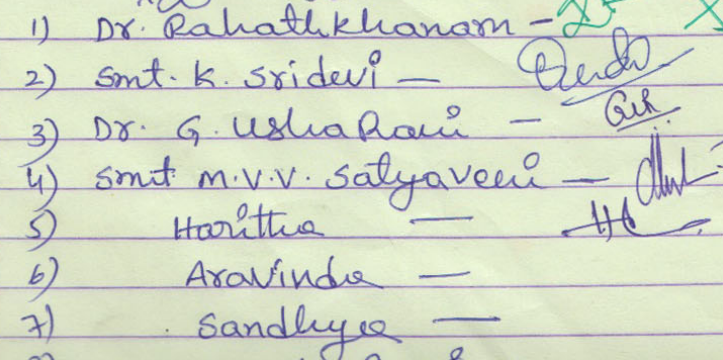 1) Dr. Rahathkhanam -
2) Smt. K. Sridevi —
3) Dr. G. Usha Rani —
4) Smt M.V.V. Satyaveni —
5) Haritha —
6) Aravinda —
7) Sandhya —